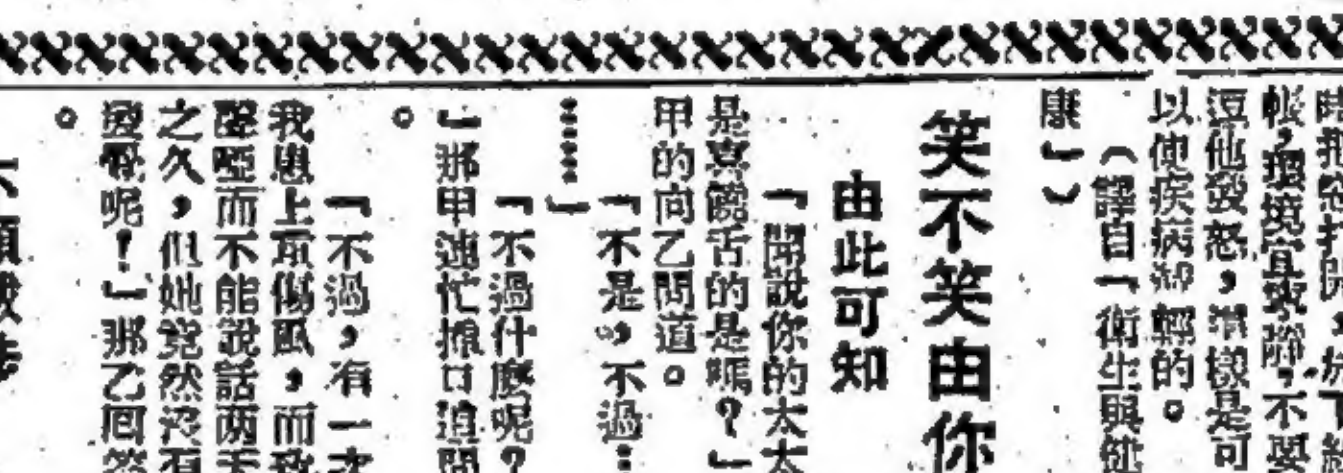 帳，環境宜安靜，不要
逗他發怒，這樣是可
以使疾病減輕的。
（譯自「衛生與健
康」）
笑不笑由你
由此可知
「聞說你的太太
是真饒舌的是嗎？」
甲的向乙問道。
「不是，不過…
……」
「不過什麼呢？
」那甲連忙擦口追問
。
「不過，有一次
我患上重傷風，而致
聲啞而不能說話两天
之久，但她竟然沒有
發覺呢！」那乙囘答
。